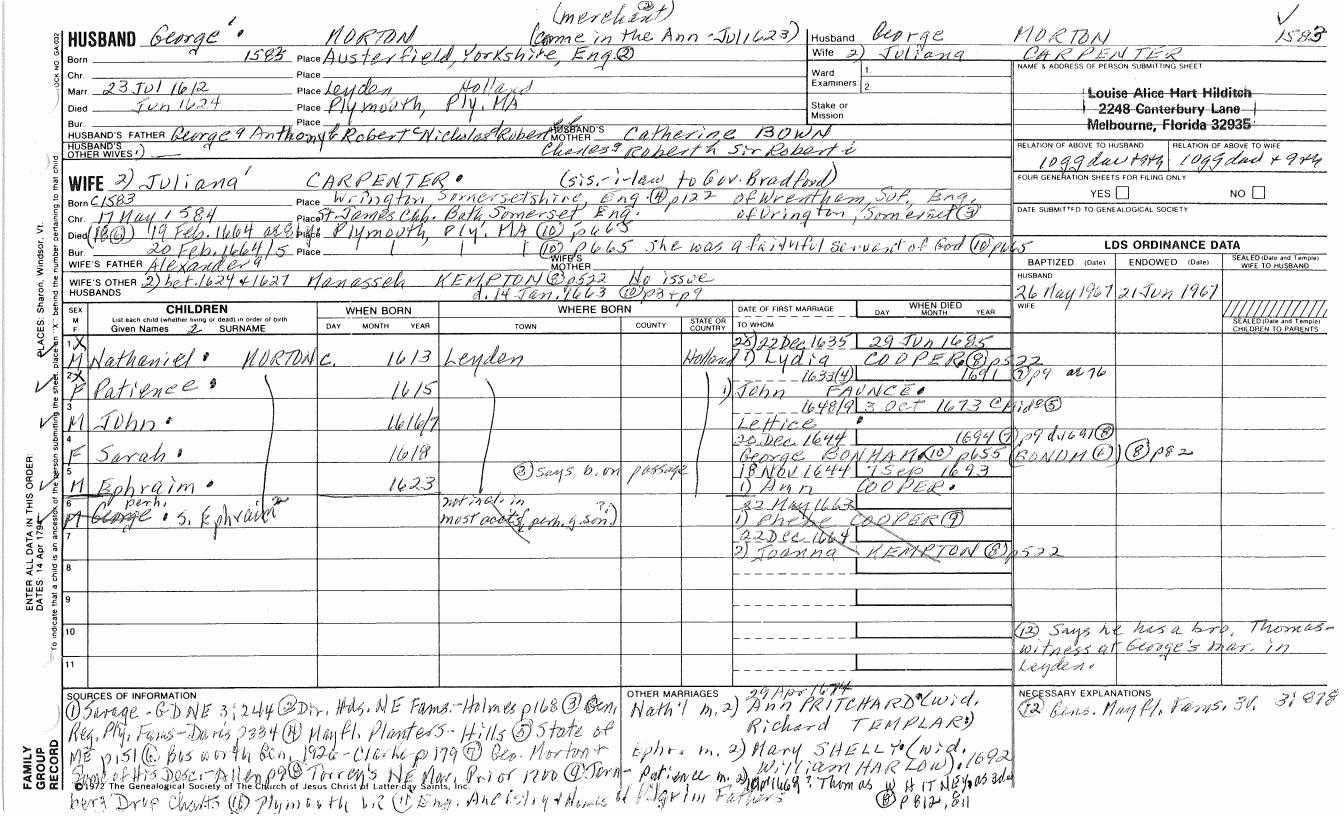 (merchant)
HUSBAND George MORTON (Come in the Ann - Jul 1623)
Husband George MORTON 1583
Born 1583 Place Austerfield, Yorkshire, Eng. (2)
Wife 2) Juliana CARPENTER
Chr. Place
Ward Examiners 1. 2.
NAME & ADDRESS OF PERSON SUBMITTING SHEET
Marr 23 Jul 1612 Place Leyden Holland
Louise Alice Hart Hilditch
2248 Canterbury Lane
Melbourne, Florida 32935
Died Jun 1624 Place Plymouth, Ply. MA
Stake or Mission
Bur. Place
HUSBAND'S FATHER George Anthony Robert Nicholas Robert
HUSBAND'S MOTHER Catherine BOWN
HUSBAND'S OTHER WIVES 1) —
Charles Robert Sir Robert
RELATION OF ABOVE TO HUSBAND
RELATION OF ABOVE TO WIFE
10 gg dau + 9th
WIFE 2) Juliana CARPENTER (sis.-i-law to Gov. Bradford)
FOUR GENERATION SHEETS FOR FILING ONLY
YES NO
Born C1583 Place Wrington Somersetshire, Eng. (4) p122 of Wrentham, Suf, Eng.
Chr. 17 May 1584 Place St. James Ch. Bath Somerset Eng. of Wrington, Somerset (3)
DATE SUBMITTED TO GENEALOGICAL SOCIETY
Died 19 Feb. 1664 Place Plymouth, Ply. MA (10) p665
Bur. 20 Feb. 1664/5 Place (10) p665 She was a faithful servant of God (10) p665
LDS ORDINANCE DATA
WIFE'S FATHER Alexander
WIFE'S MOTHER
BAPTIZED (Date) ENDOWED (Date) SEALED (Date and Temple) WIFE TO HUSBAND
WIFE'S OTHER HUSBANDS 2) bet. 1624 & 1627 Manasseh KEMPTON (8) p522 No issue
d. 14 Jan. 1663 p3 + p9
HUSBAND 26 May 1967 21 Jun 1967
WIFE
SEX M F
CHILDREN
List each child (whether living or dead) in order of birth
Given Names SURNAME
WHEN BORN
DAY MONTH YEAR
WHERE BORN
TOWN COUNTY STATE OR COUNTRY
DATE OF FIRST MARRIAGE
TO WHOM
WHEN DIED
DAY MONTH YEAR
SEALED (Date and Temple) CHILDREN TO PARENTS
1 X 22 Dec 1635 29 Jun 1685
M Nathaniel MORTON c. 1613 Leyden Holland 1) Lydia COOPER (8) p522
2 X 1633 (4) 1691 (7) p9
F Patience 1615 1) John FAUNCE
3 1648/9 3 Oct 1673
M John 1616/7 Lettice
4 20 Dec 1644 1694 (7) p9 d. 1691 (8)
F Sarah 1618 George BONHAM (10) p655 BONUM (6) (8) p82
5 (3) says b. on passage 18 Nov 1644 7 Sep 1693
M Ephraim 1623 1) Ann COOPER
6 perh. not incl. in 22 May 1663
M George s. Ephraim most accts (perh. g. son) 1) Phebe COOPER (9)
7 22 Dec 1664
2) Joanna KEMPTON (8) p522
8
9
10
11
(12) Says he has a bro. Thomas-
witness at George's mar. in
Leyden.
SOURCES OF INFORMATION
(1) Savage - GDNE 3; 244 (2) Dir. Hds. NE Fams. - Holmes p168 (3) Gen.
Reg. Ply. Fams - Davis (4) Mayfl. Planters - Hills (5) State of
ME p151 (6) Bosworth Gen. 1926 - Clarke p179 (7) Geo. Morton +
Some of His Desc. - Allen p9 (8) Torrey's NE Mar. Prior 1700 (9)
Drop Charts (10) Plymouth VR (11) Eng. Ancestry & Homes of Pilgrim Fathers
OTHER MARRIAGES
29 Apr 1674
Nath'l m. 2) Ann PRITCHARD (wid.
Richard TEMPLAR)
Ephr. m. 2) Mary SHELLY (wid.
William HARLOW) 1692
Patience m. 2) 1669? Thomas WHITNEY
(8) p812
NECESSARY EXPLANATIONS
(12) Gens. Mayfl. Fams. 3V. 3; 878
©1972 The Genealogical Society of The Church of Jesus Christ of Latter-day Saints, Inc.
FAMILY GROUP RECORD
ENTER ALL DATA IN THIS ORDER
DATES: 14 Apr 1794
PLACES: Sharon, Windsor, Vt.
To indicate that a child is an ancestor of the person submitting the sheet, place an "X" behind the number pertaining to that child